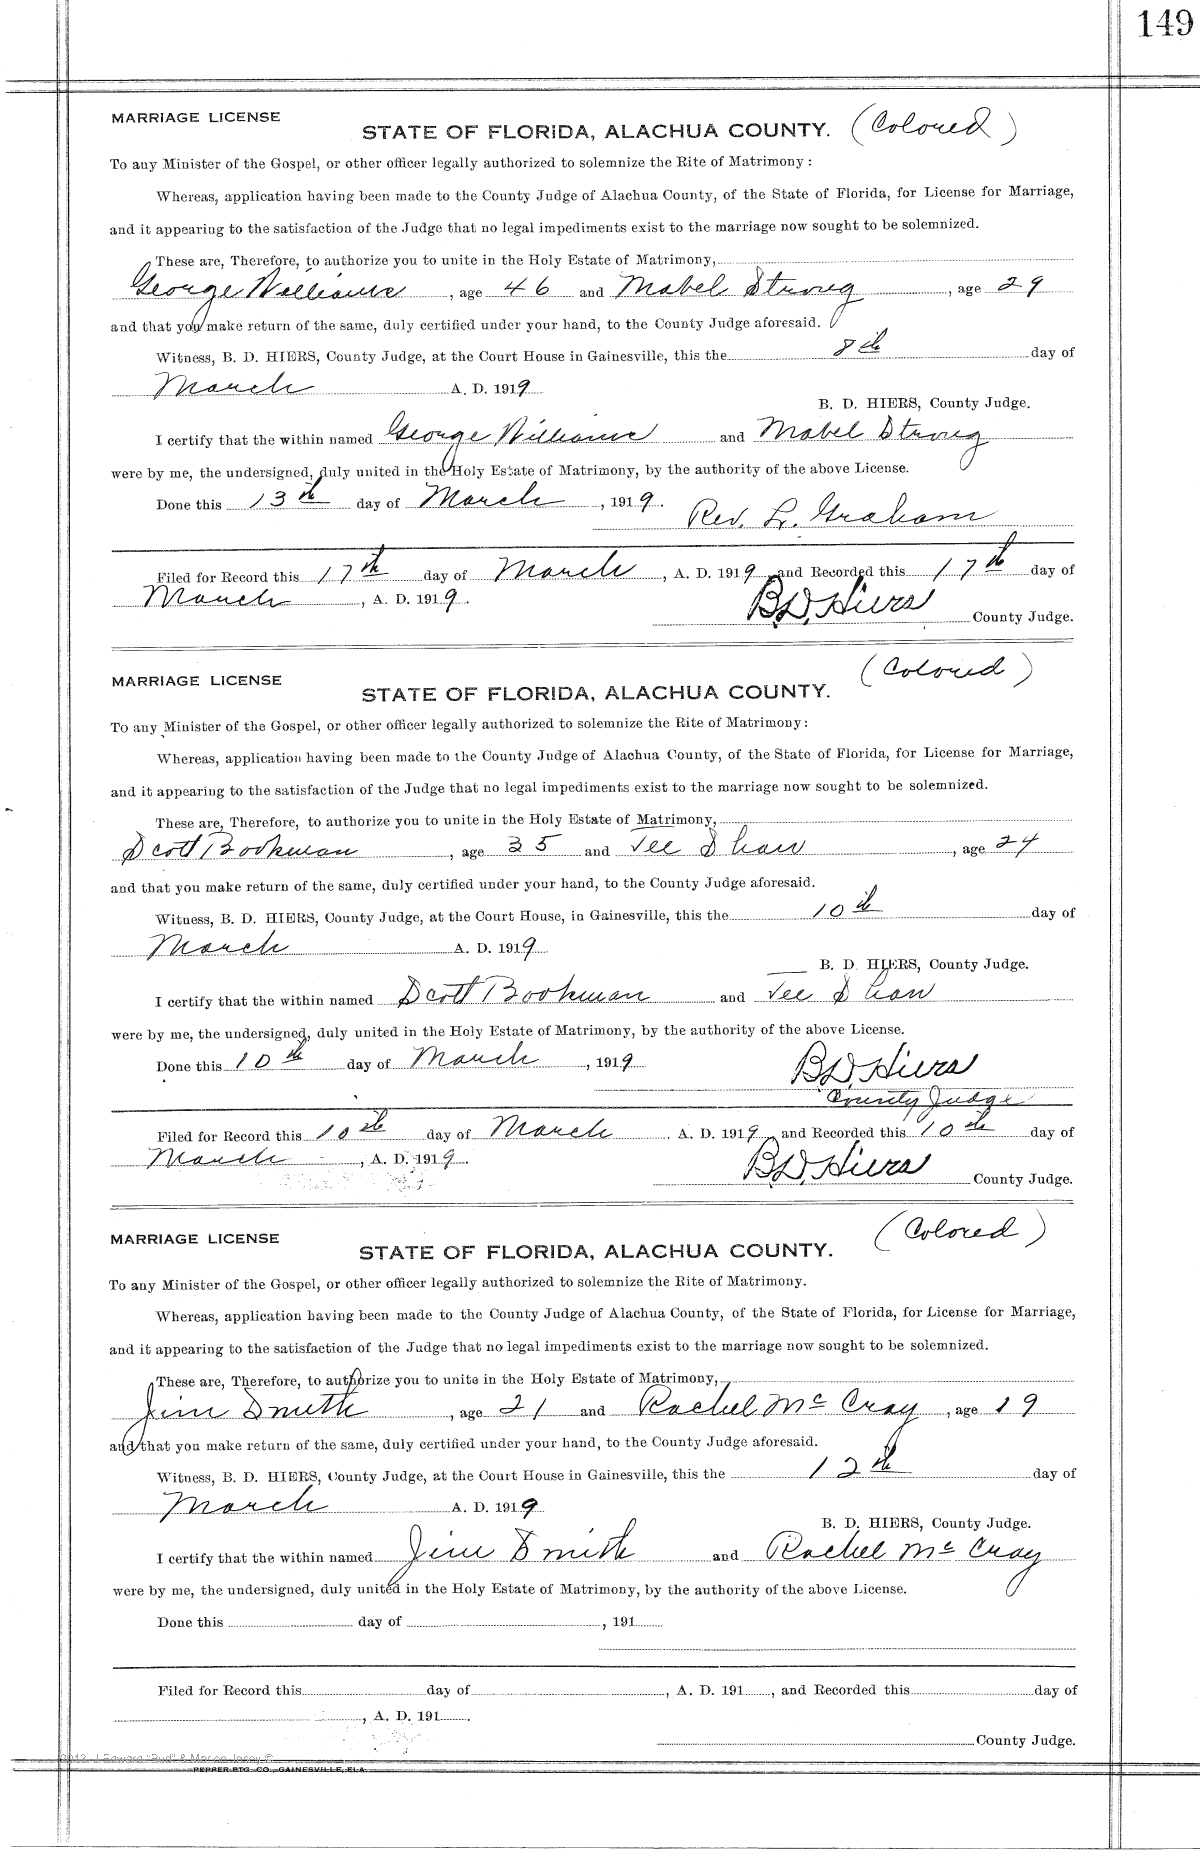 149
MARRIAGE LICENSE
STATE OF FLORIDA, ALACHUA COUNTY. (Colored)
To any Minister of the Gospel, or other officer legally authorized to solemnize the Rite of Matrimony:
Whereas, application having been made to the County Judge of Alachua County, of the State of Florida, for License for Marriage,
and it appearing to the satisfaction of the Judge that no legal impediments exist to the marriage now sought to be solemnized.
These are, Therefore, to authorize you to unite in the Holy Estate of Matrimony,
George Williams, age 46 and Mabel Strong, age 29
and that you make return of the same, duly certified under your hand, to the County Judge aforesaid.
Witness, B. D. HIERS, County Judge, at the Court House in Gainesville, this the 8th day of
March A. D. 1919
B. D. HIERS, County Judge.
I certify that the within named George Williams and Mabel Strong
were by me, the undersigned, duly united in the Holy Estate of Matrimony, by the authority of the above License.
Done this 13th day of March, 1919.
Rev. L. Graham
Filed for Record this 17th day of March, A. D. 1919, and Recorded this 17th day of
March, A. D. 1919.
B.D. Hiers County Judge.
(Colored)
MARRIAGE LICENSE
STATE OF FLORIDA, ALACHUA COUNTY.
To any Minister of the Gospel, or other officer legally authorized to solemnize the Rite of Matrimony:
Whereas, application having been made to the County Judge of Alachua County, of the State of Florida, for License for Marriage,
and it appearing to the satisfaction of the Judge that no legal impediments exist to the marriage now sought to be solemnized.
These are, Therefore, to authorize you to unite in the Holy Estate of Matrimony,
Scott Bookman, age 35 and Tee Shaw, age 24
and that you make return of the same, duly certified under your hand, to the County Judge aforesaid.
Witness, B. D. HIERS, County Judge, at the Court House, in Gainesville, this the 10th day of
March A. D. 1919
B. D. HIERS, County Judge.
I certify that the within named Scott Bookman and Tee Shaw
were by me, the undersigned, duly united in the Holy Estate of Matrimony, by the authority of the above License.
Done this 10th day of March, 1919
B.D. Hiers
County Judge
Filed for Record this 10th day of March. A. D. 1919, and Recorded this 10th day of
March, A. D. 1919.
B.D. Hiers County Judge.
(Colored)
MARRIAGE LICENSE
STATE OF FLORIDA, ALACHUA COUNTY.
To any Minister of the Gospel, or other officer legally authorized to solemnize the Rite of Matrimony.
Whereas, application having been made to the County Judge of Alachua County, of the State of Florida, for License for Marriage,
and it appearing to the satisfaction of the Judge that no legal impediments exist to the marriage now sought to be solemnized.
These are, Therefore, to authorize you to unite in the Holy Estate of Matrimony,
Jim Smith, age 21 and Rachel McCray, age 19
and that you make return of the same, duly certified under your hand, to the County Judge aforesaid.
Witness, B. D. HIERS, County Judge, at the Court House in Gainesville, this the 12th day of
March A. D. 1919
B. D. HIERS, County Judge.
I certify that the within named Jim Smith and Rachel McCray
were by me, the undersigned, duly united in the Holy Estate of Matrimony, by the authority of the above License.
Done this day of , 191
Filed for Record this day of , A. D. 191 , and Recorded this day of
, A. D. 191 .
County Judge.
PEPPER PTG. CO., GAINESVILLE, FLA.